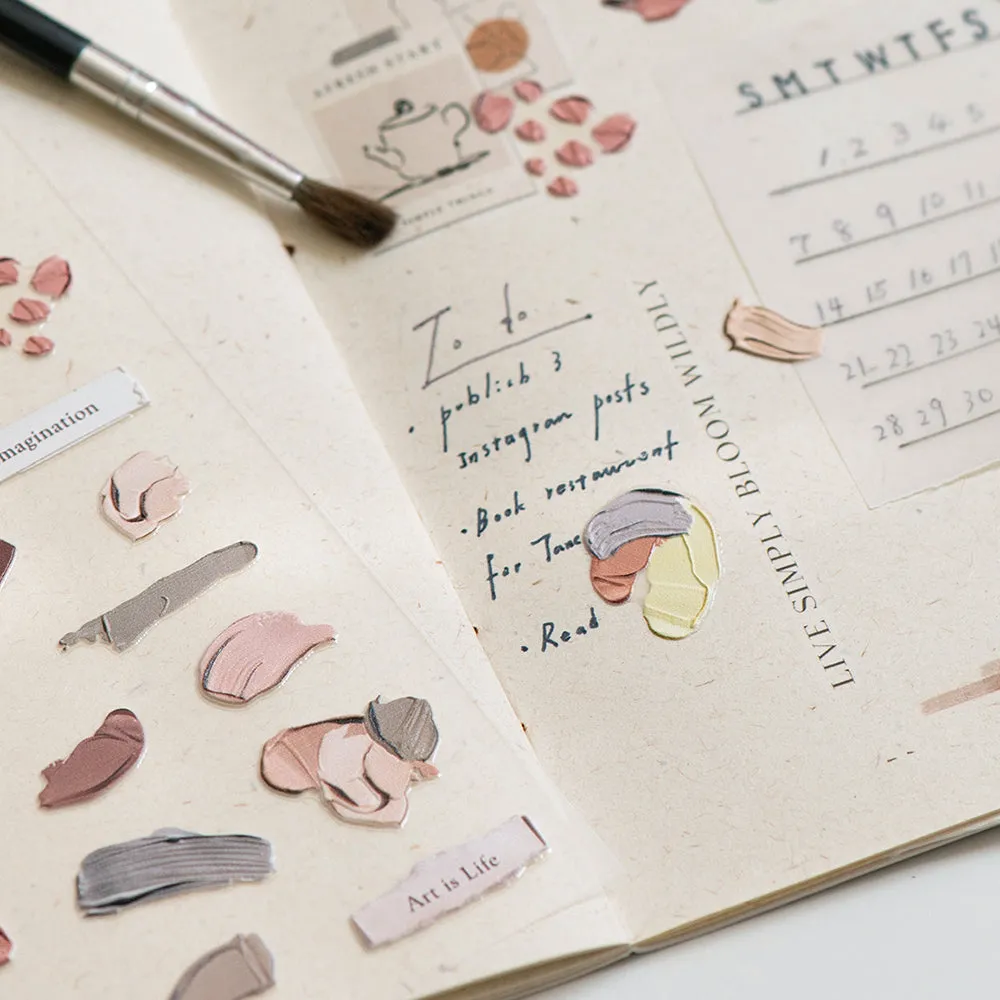 REFRESH START
SIMPLE THINGS
S M T W T F S
1 2 3 4 5
7 8 9 10 11
14 15 16 17
21 22 23 24
28 29 30
To do
• publish 3
Instagram posts
• Book restaurant
for Jane
• Read
LIVE SIMPLY BLOOM WILDLY
magination
Art is Life